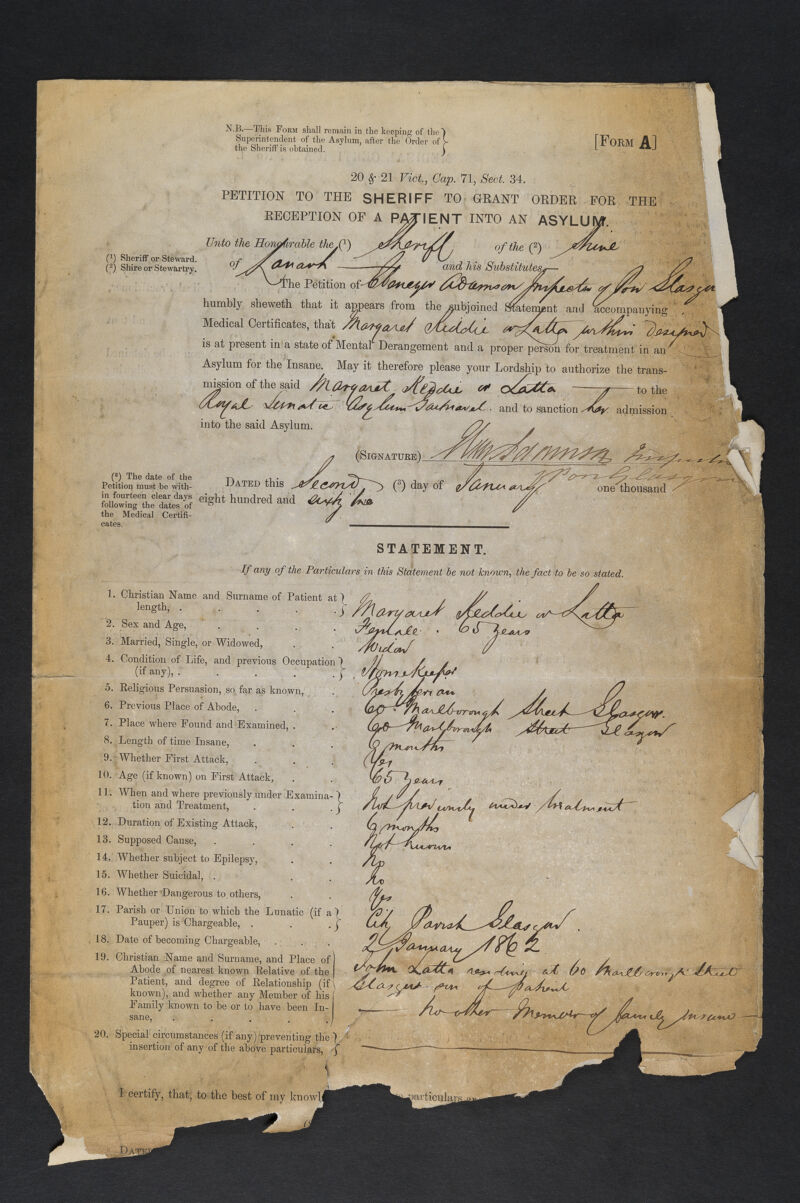 N.B.—This Form shall remain in the keeping of the
Superintendent of the Asylum, after the Order of
the Sheriff is obtained.
[Form A]
20 & 21 Vict., Cap. 71, Sect. 34.
PETITION TO THE SHERIFF TO GRANT ORDER FOR THE
RECEPTION OF A PATIENT INTO AN ASYLUM.
Unto the Honourable the (1) Sheriff of the (2) Shire
(1) Sheriff or Steward.
(2) Shire or Stewartry.
of Lanark and his Substitutes,
The Petition of Ebenezer Adamson Inspector of Poor Glasgow
humbly sheweth that it appears from the subjoined Statement and accompanying
Medical Certificates, that Margaret Keddie or Latta within Designed
is at present in a state of Mental Derangement and a proper person for treatment in an
Asylum for the Insane. May it therefore please your Lordship to authorize the trans-
mission of the said Margaret Keddie or Latta to the
Royal Lunatic Asylum Gartnavel and to sanction her admission
into the said Asylum.
(Signature) Adamson Inspector
of Poor Glasgow
(3) The date of the
Petition must be with-
in fourteen clear days
following the dates of
the Medical Certifi-
cates.
Dated this Second (3) day of January one thousand
eight hundred and sixty two
STATEMENT.
If any of the Particulars in this Statement be not known, the fact to be so stated.
1. Christian Name and Surname of Patient at
length, . . . . . Margaret Keddie or Latta
2. Sex and Age, . . . . Female . 65 years
3. Married, Single, or Widowed, . . Widow
4. Condition of Life, and previous Occupation
(if any), . . . . . Housekeeper
5. Religious Persuasion, so far as known, . Presbyterian
6. Previous Place of Abode, . . 60 Marlborough Street Glasgow.
7. Place where Found and Examined, . . 60 Marlborough Street Glasgow
8. Length of time Insane, . . . months
9. Whether First Attack, . . . Yes
10. Age (if known) on First Attack, . . 65 years
11. When and where previously under Examina-
tion and Treatment, . . . Not previously under treatment
12. Duration of Existing Attack, . . months
13. Supposed Cause, . . . . Not known
14. Whether subject to Epilepsy, . . No
15. Whether Suicidal, . . . . No
16. Whether Dangerous to others, . . Yes
17. Parish or Union to which the Lunatic (if a
Pauper) is Chargeable, . . . City Parish Glasgow.
18. Date of becoming Chargeable, . . . 2 January 1862
19. Christian Name and Surname, and Place of
Abode of nearest known Relative of the
Patient, and degree of Relationship (if
known), and whether any Member of his
Family known to be or to have been In-
sane, . . . . . .
John Latta residing at 60 Marlborough Street
Glasgow son of patient
— No other Member of family Insane —
20. Special circumstances (if any) preventing the
insertion of any of the above particulars,
I certify, that, to the best of my knowl particulars
Dated